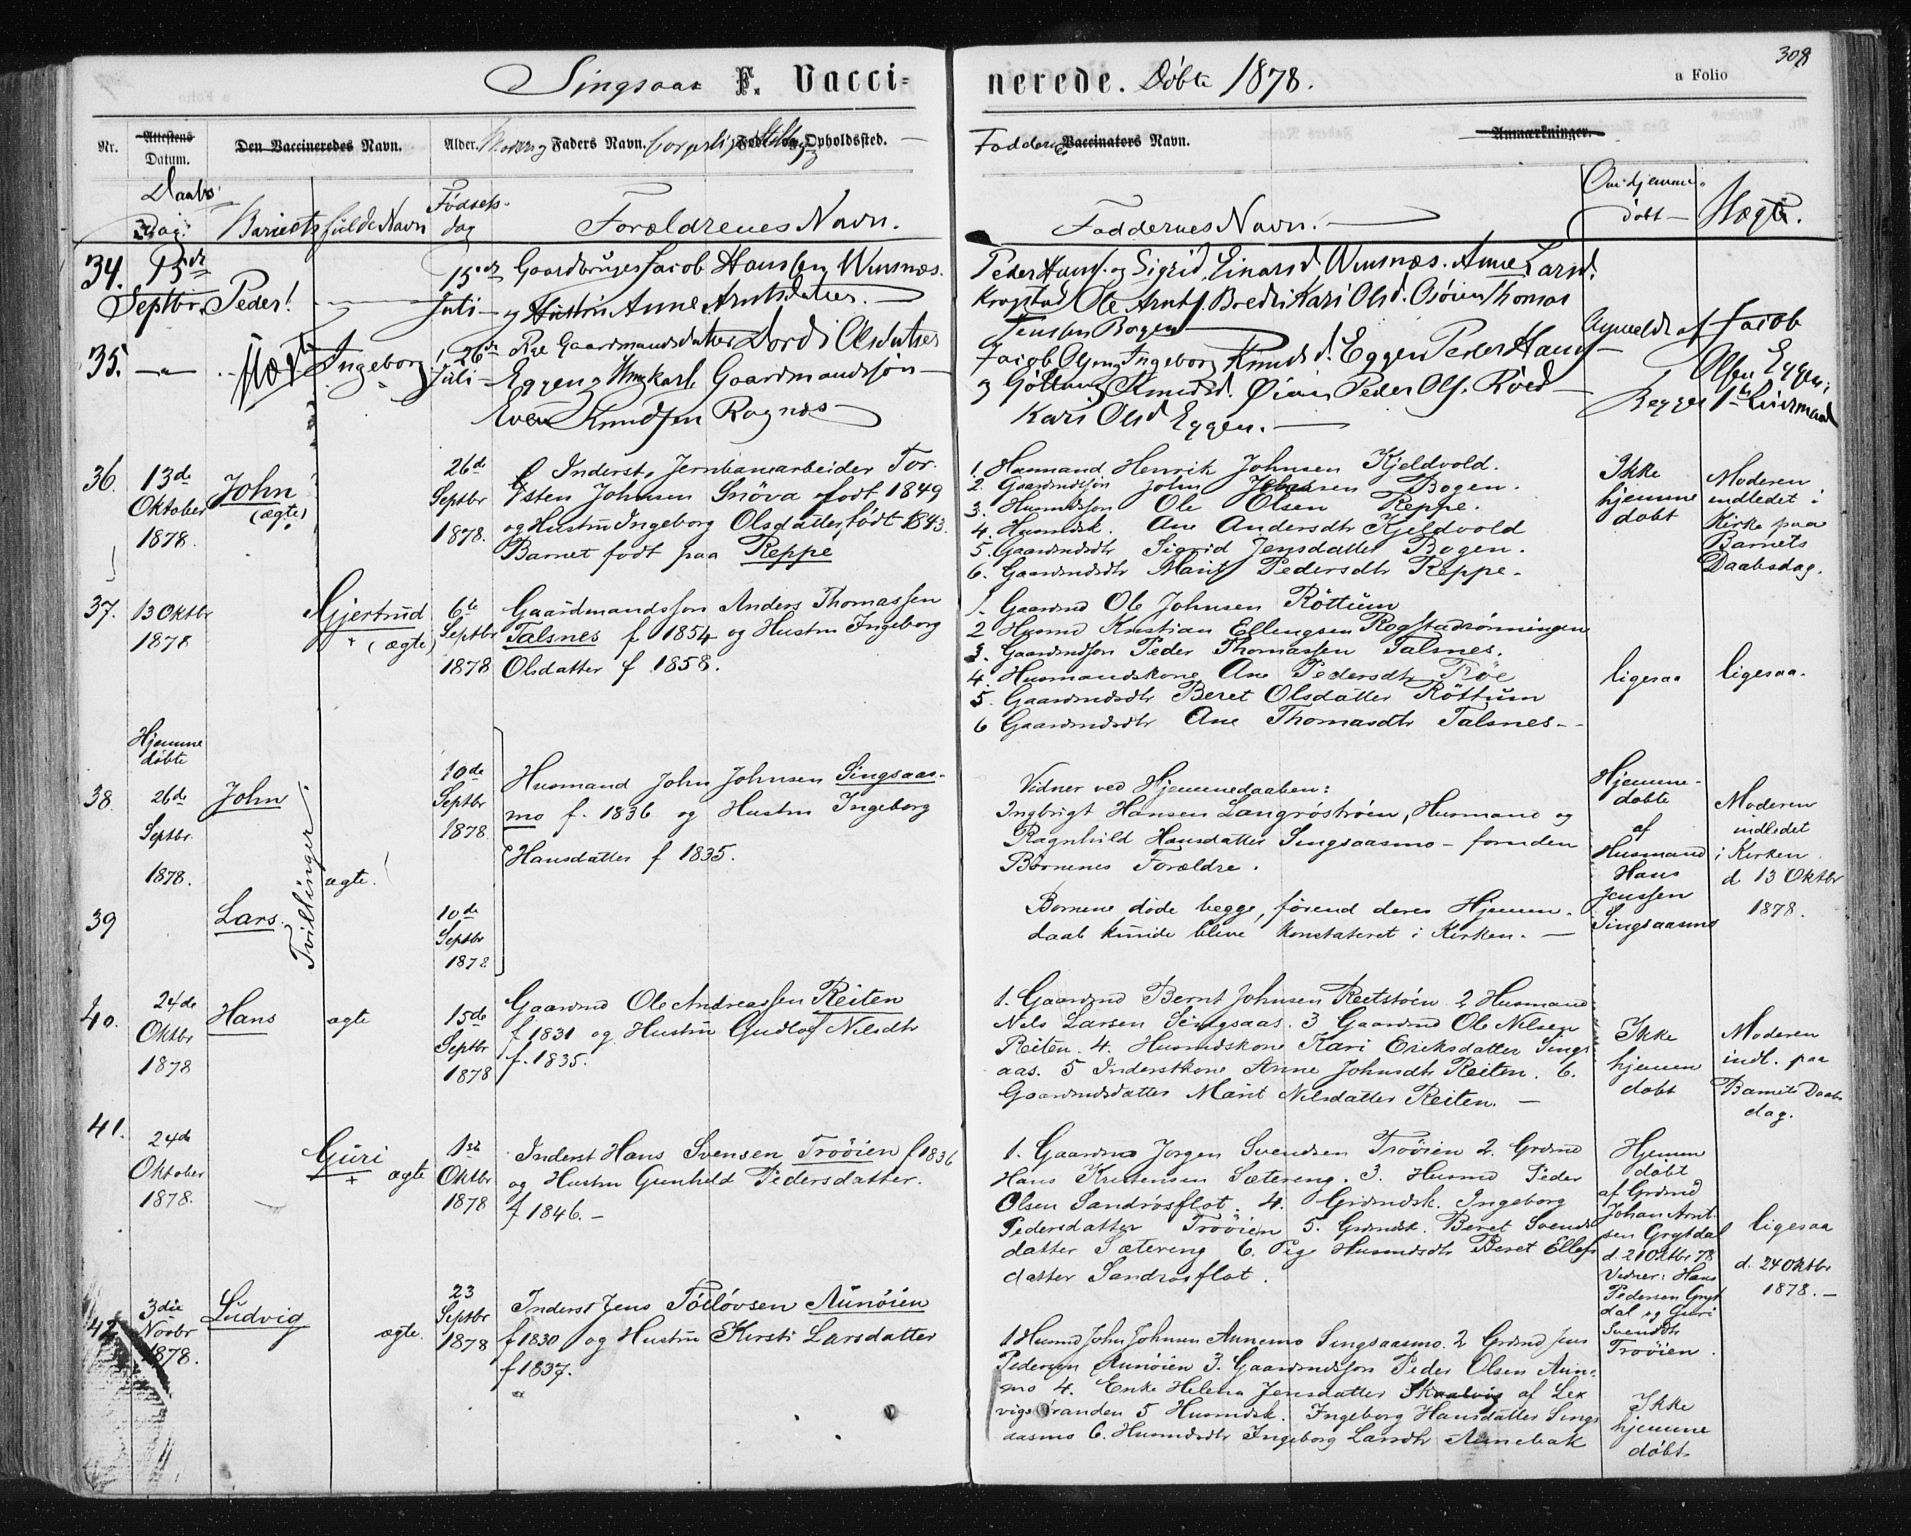 308
Singsaas F. Vacci-
nerede. Døbte 1878.
a Folio
Nr.
Attestens Datum.
Den Vaccineredes Navn.
Alder.
Faders Navn.
Opholdssted.
Fadderne
Vaccinators Navn.
Anmærkninger.
Daabs
Dag.
Barnets fulde Navn
Fødsels-
dag
Forældrenes Navn.
Faddernes Navn.
Om hjemme-
døbt
34.
15de
Septbr.
Peder!
15de
Juli
Gaardbruger Jacob Hansen Winsnæs
og Hustru Anne Arntsdatter.
Peder Hans. og Sigrid Einarsd. Winsnæs. Anne Larsd.
Krogstad Ole Arnts. Bredli Kari Olsd. Osøien Thomas
Jensen Bogen
35.
Ingeborg
26de
Juli
Gaardmandsdatter Dordi Olsdatter
Eggen og Ungkarl Gaardmandssøn
Knudsen Rognæs
Jacob Olsen Ingeborg Knudsd. Eggen Peder Hans
Knudsd. Øien Peder Ols. Röed
Kari Olsd Eggen.
Anmeldt af Jacob
Olsen Eggen.
Begges 1ste Leiermaal
36.
13de
Oktober
1878.
John
(ægte)
26de
Septbr
1878.
Inderst, Jernbanearbeider Tor-
sten Johnsen Snöva født 1849
og Hustru Ingeborg Olsdatter, født 1843.
Barnet født paa Reppe
1. Husmand Henrik Johnsen Kjeldvold.
2. Gaardmdsøn John Jensen Bogen.
3. Husmdsøn Ole Olsen Reppe.
4. Husmdsk. Ane Andersdtr Kjeldvold
5. Gaardmdsdtr Sigrid Jensdatter Bogen.
6. Gaardmdsdtr Marit Pedersdtr Reppe.
Ikke
hjemme
døbt
Moderen
indledet i
Kirke paa
Barnets
Daabsdag.
37.
13 Oktbr
1878
Gjertrud
+ (ægte)
6te
Septbr
1878
Gaardmandssøn Anders Thomassen
Talsnes f 1854 og Hustru Ingeborg
Olsdatter f 1858.
1. Gaardmd Ole Johnsen Röttum
2 Husmd Kristian Ellengsen Rogstadrønningen
3. Gaardmdsøn Peder Thomassen Talsnes.
4. Husmandskone Ane Pedersdtr Röe
5. Gaardmdsdtr Beret Olsdatter Röttum
6 Gaardmdsdtr Ane Thomasdtr Talsnes.
ligesaa
ligesaa.
Hjemme
døbte
38.
26de
Septbr.
1878.
John
Tvillinger.
ægte.
10de
Septbr
1878
Husmand John Johnsen Singsaas-
mo f. 1836 og Hustru Ingeborg
Hansdatter f 1835.
Vidner ved Hjemmedaaben:
Ingbrigt Hansen Langröströen, Husmand og
Ragnhild Hansdatter Singsaasmo - foruden
Børnenes Forældre.
Hjemme-
døbte
af
Husmand
Hans
Jenssen
Singsaasmo
Moderen
indledet
i Kirken
d 13 Oktbr
1878.
39
Lars.
10de
Septbr
1878
Børnene døde begge, førend deres Hjemme-
daab kunde blive konstateret i Kirken.
40.
24de
Oktbr
1878
Hans
ægte
15de
Septbr
1878
Gaardmd Ole Andreassen Reiten
f 1831 og Hustru Gudlof Nilsdtr
f. 1835.
1. Gaardmd Bernt Johnsen Reitstöen 2 Husmand
Nils Larsen Singsaas. 3 Gaardmd Ole Nilsen
Reiten. 4. Husmdskone Kari Eriksdatter Sings
aas. 5 Inderstkone Anne Johnsdtr Reiten. 6.
Gaardmdsdatter Marit Nilsdatter Reiten.
Ikke
hjemme
døbt
Moderen
indl. paa
Barnets Daabs
dag.
41.
24de
Oktober
1878.
Guri
+ ægte
1ste
Oktbr
1878
Inderst Hans Svensen Trööien f 1836
og Hustru Gunhild Pedersdatter.
f 1846.
1. Gaardmd Jørgen Svendsen Tröoien 2. Grdmd
Hans Kristensen Sætereng. 3. Husmd Peder
Olsen Sandrösflot. 4. Grdmdsk. Ingeborg
Pedersdatter Tröoien 5. Grdmdsk. Beret Svends
datter Sætereng 6. Pige Husmdsdtr Beret Ellefs
datter Sandrosflot.
Hjemme
døbt
af Grdmd
Johan Arnt-
sen Grytdal
d. 2 Oktbr 78
Vidner: Hans
Pedersen Gryt
dal og Guri
Svendsdtr
Tröoien.
ligesaa
d. 24 Oktbr
1878.
42
3die
Novbr
1878.
Ludvig
ægte.
23
Septbr
1878
Inderst Jens Töllöfsen Aunöien
f 1830 og Hustru Kirsti Larsdatter
f 1837.
1 Husmd John Johnsen Aunemo Singsaasmo. 2 Grdmd Jens
Pedersen Aunöien 3. Gaardmdsøn Peder Olsen Aune-
mo 4. Enke Helena Jensdatter Skaalvig af Lex
vigstranden 5 Husmdsk. Ingeborg Hansdatter Sings
aasmo 6. Husmdsdtr Ingeborg Larsdtr Aunebak
Ikke
hjemme
døbt